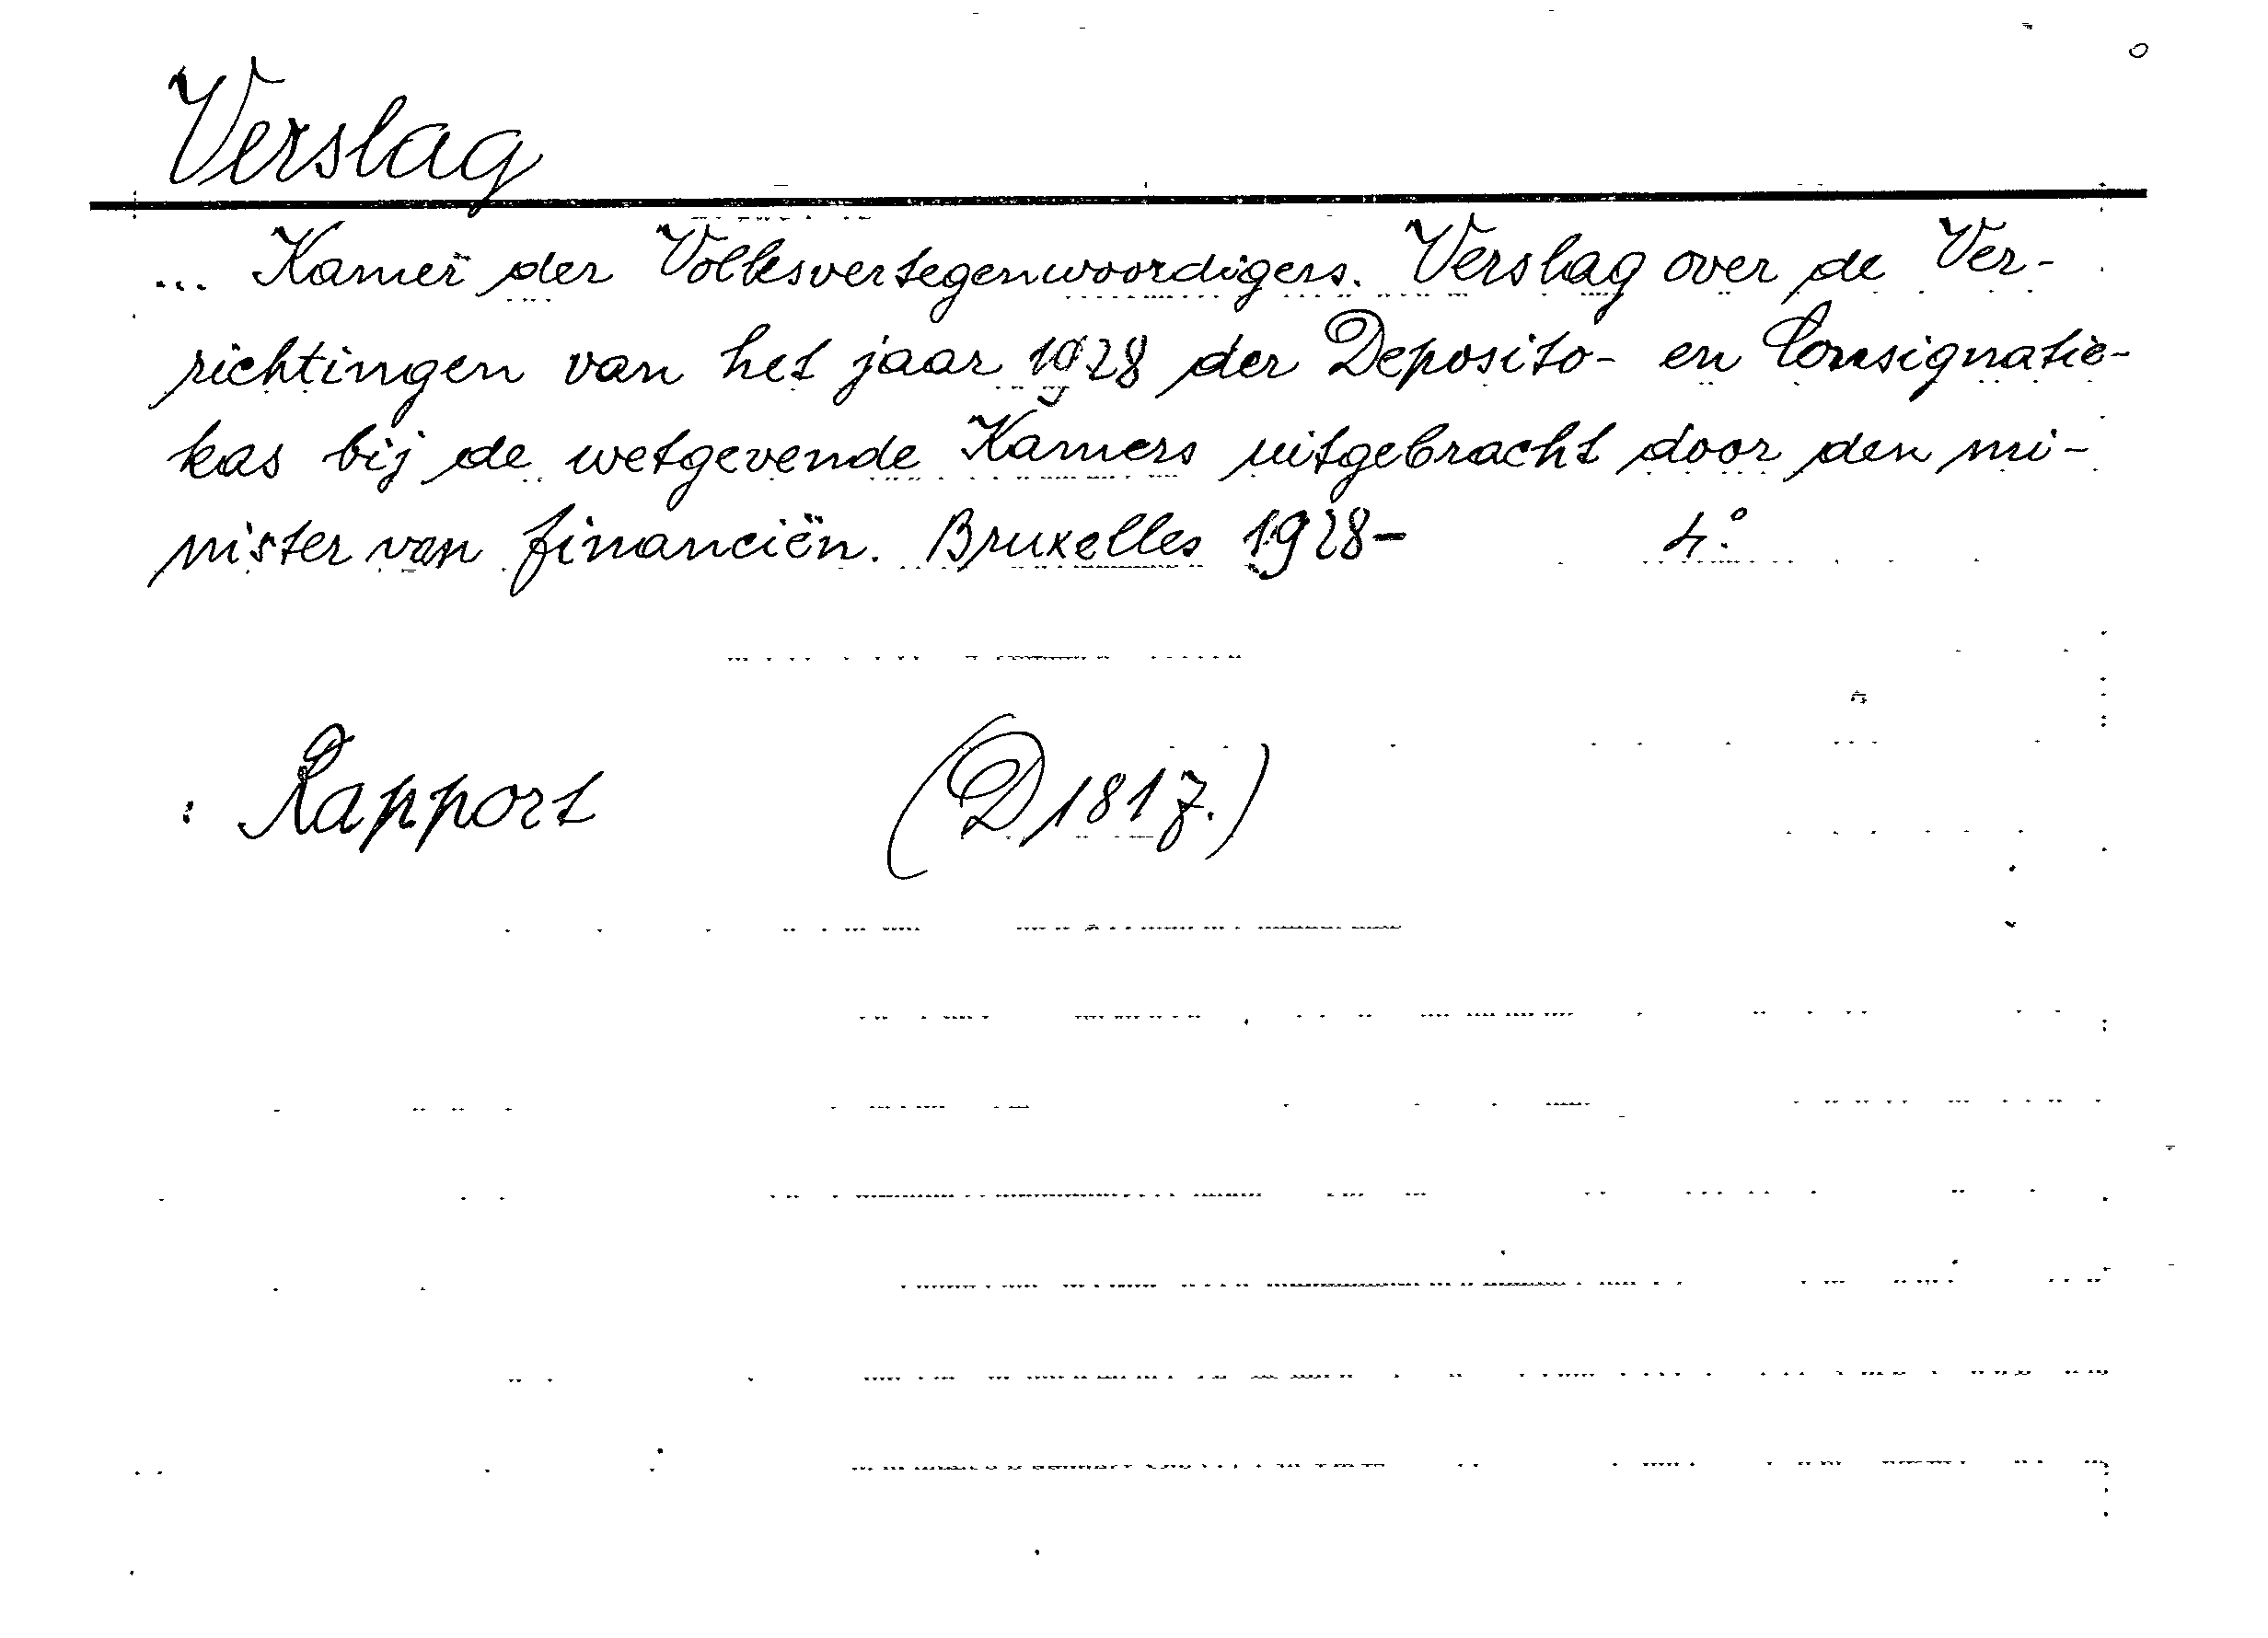 Verslag
... Kamer der Volksvertegenwoordigers. Verslag over de Ver-
richtingen van het jaar 1928 der Deposito- en Consignatie-
kas bij de wetgevende Kamers uitgebracht door den mi-
nister van financiën. Bruxelles 1928- 4°
: Rapport (D 181 7.)